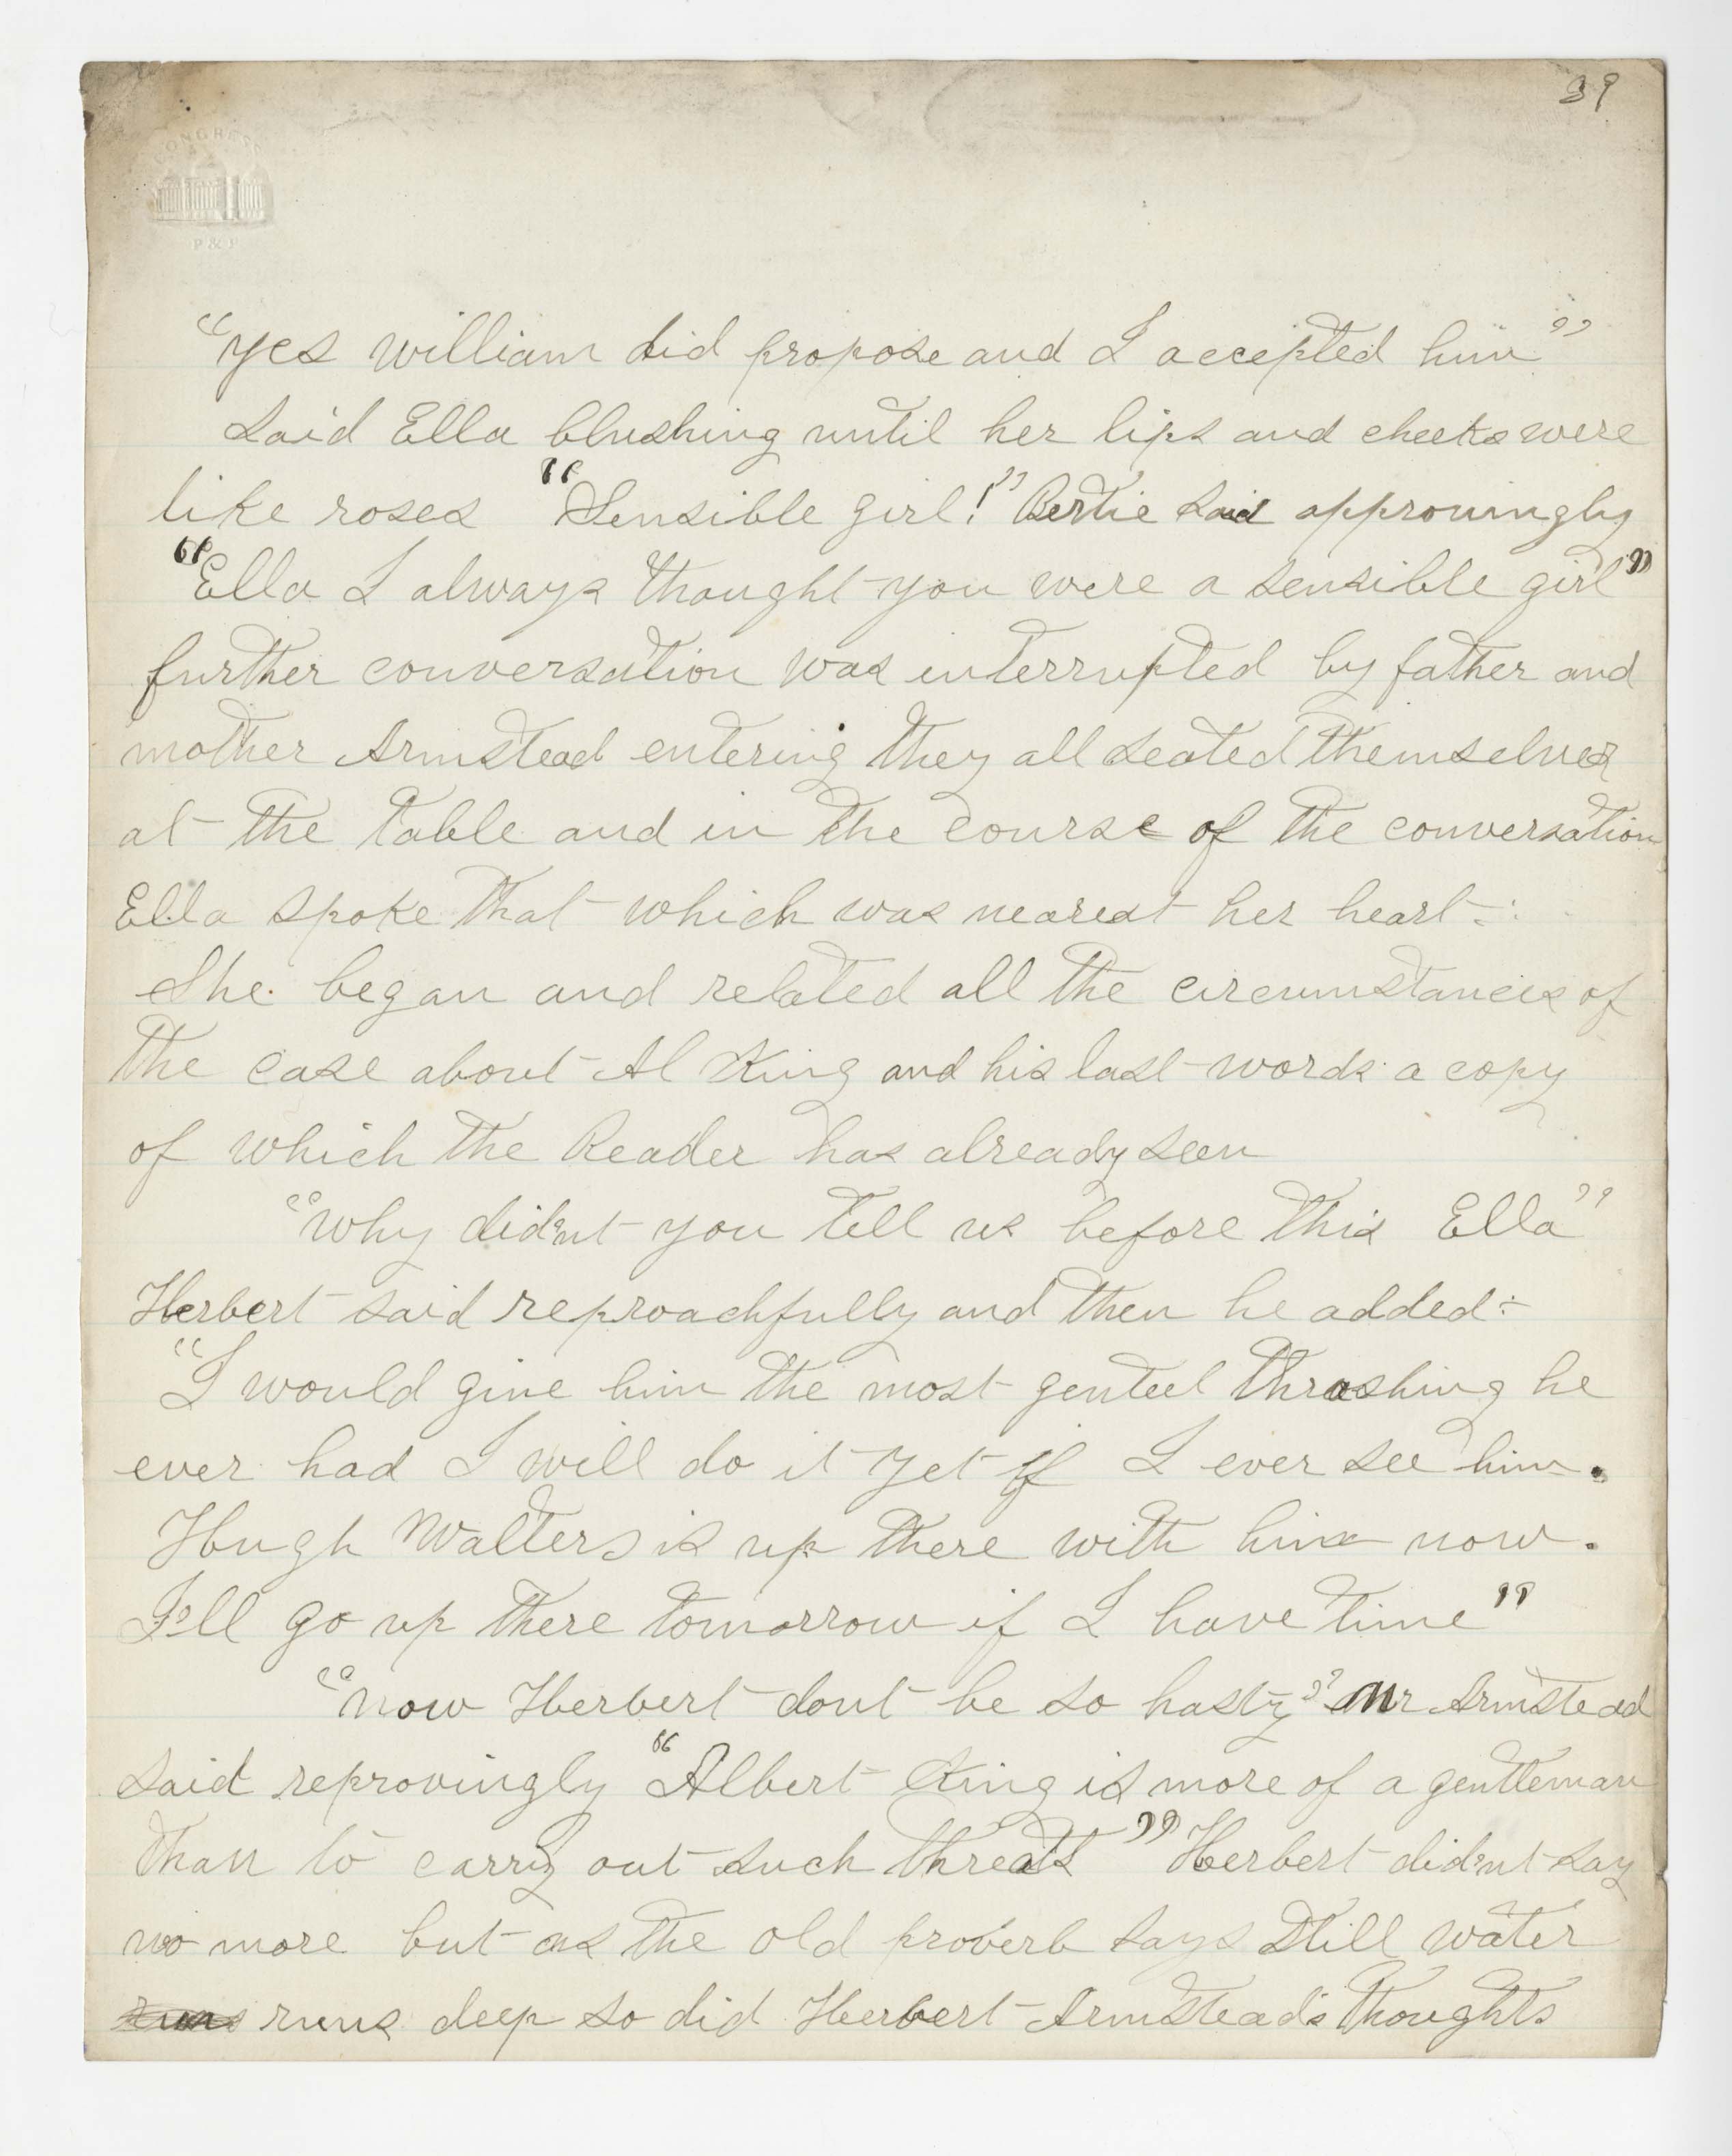 39
CONGRESS
P & P
"Yes William did propose and I accepted him"
said Ella blushing until her lips and cheeks were
like roses "Sensible girl!" Bertie said approvingly
"Ella I always thought you were a sensible girl"
further conversation was interrupted by father and
mother Armstead entering they all seated themselves
at the table and in the course of the conversation
Ella spoke that which was nearest her heart:
She began and related all the circumstances of
the case about Al King and his last words a copy
of which the Reader has already seen
"Why did'nt you tell us before this Ella"
Herbert said reproachfully and then he added:-
"I would give him the most genteel thrashing he
ever had I will do it yet if I ever see him.
Hugh Walters is up there with him now.
I'll go up there tomorrow if I have time"
"now Herbert dont be so hasty" Mr Armstead
said reprovingly "Albert King is more of a gentleman
than to carry out such threats" Herbert did'nt say
no more but as the old proverb says Still water
runs runs deep so did Herbert Armstead's thoughts